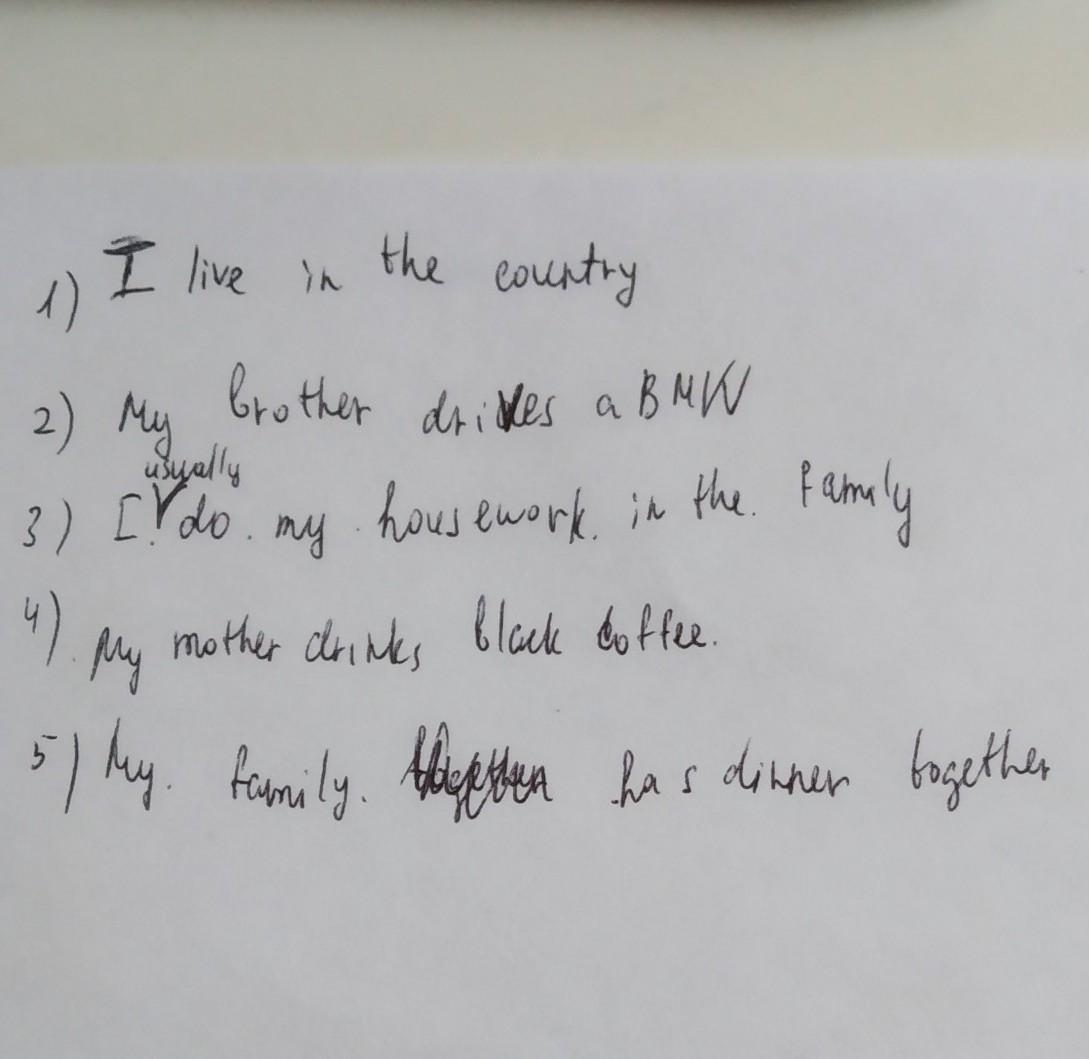 1) I live in the country
2) My brother drives a BMW
usually
3) I do my housework in the family
4) My mother drinks black coffee.
5) My family has dinner together